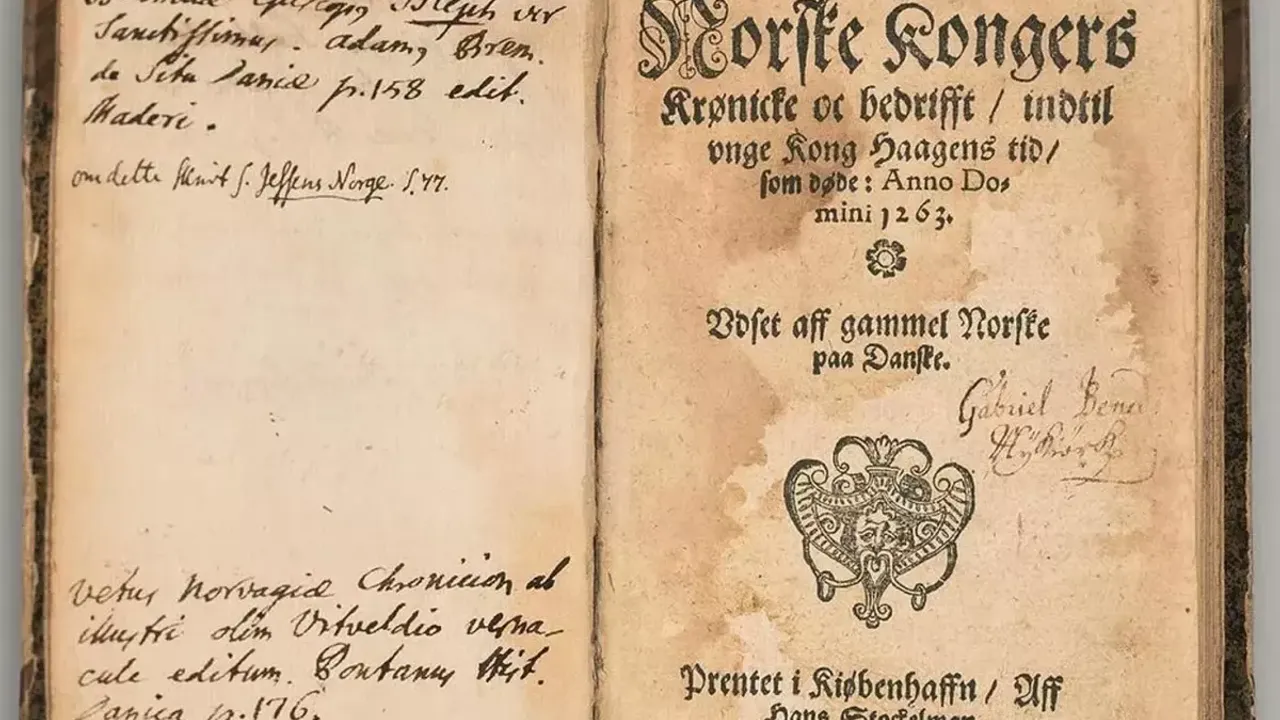 vir
Sanctissimus. Adamus Brem.
de Situ Daniæ p.158 edit.
Maderi.
om dette Skrift s. Jessens Norge. S.77.
vetus Norvagiæ Chronicion ab
illustri olim Vitveldio verna-
cule editum. Pontanus Hist.
Danica p.176.
Norske Kongers
Krønicke oc bedrifft / indtil
vnge Kong Haagens tid/
som døde: Anno Do-
mini 1263.
Vdset aff gammel Norske
paa Danske.
Gabriel
Prentet i Kiøbenhaffn / Aff
Hans Stockelman